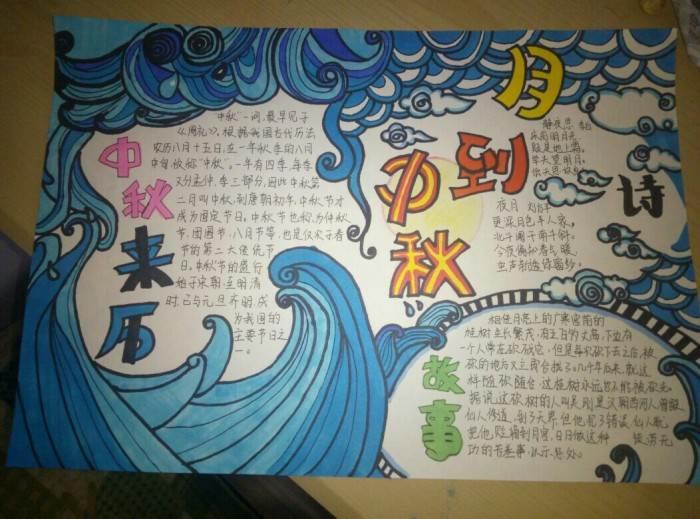 月到中秋
中秋来历
"中秋"一词，最早见于
《周礼》。根据我国古代历法，
农历八月十五日，在一年秋季的八月
中旬，故称"中秋"。一年有四季，每季
又分孟、仲、季三部分，因此中秋第
二月叫中秋，到唐朝初年，中秋节才
成为固定节日。中秋节也称为仲秋
节，团圆节，八月节等，也是仅次于春
节的第二大传统节
日。中秋节的盛行
始于宋朝，至明清
时，已与元旦齐明，成
为我国的
主要节日之
一。
诗
静夜思 李白
床前明月光，
疑是地上霜。
举头望明月，
低头思故乡。
夜月 刘方平
更深月色半人家，
北斗阑干南斗斜。
今夜偏知春气暖，
虫声新透绿窗纱。
故事
相传月亮上的广寒宫前的
桂树生长繁茂，有五百多丈高，下边有
一个人常在砍伐它，但是每次砍下去之后，被
砍的地方又立即合拢了。几千年以来，就这
样随砍随合，这棵树永远也不能被砍光。
据说这砍树的人叫吴刚，是汉朝西河人，曾跟
仙人修道，到了天界，但他犯了错误，仙人就
把他贬谪到月宫，日日做这种 徒劳无
功的苦差事，以示惩处。